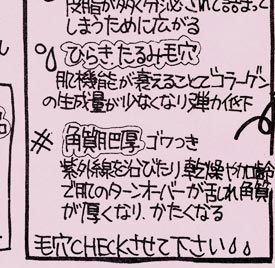 皮脂が多く分泌されて詰まって
しまうために広がる
ひらき、たるみ毛穴
肌機能が衰えることでコラーゲン
の生成量が少なくなり弾力低下
角質肥厚 ゴワつき
紫外線を浴びたり、乾燥や加齢
で肌のターンオーバーが乱れ角質
が厚くなり、かたくなる
毛穴CHECKさせて下さい